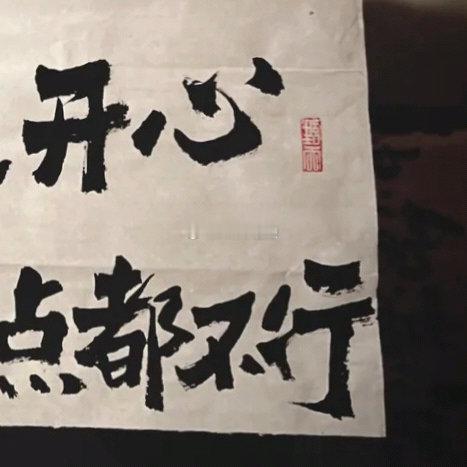 开心
点都不行